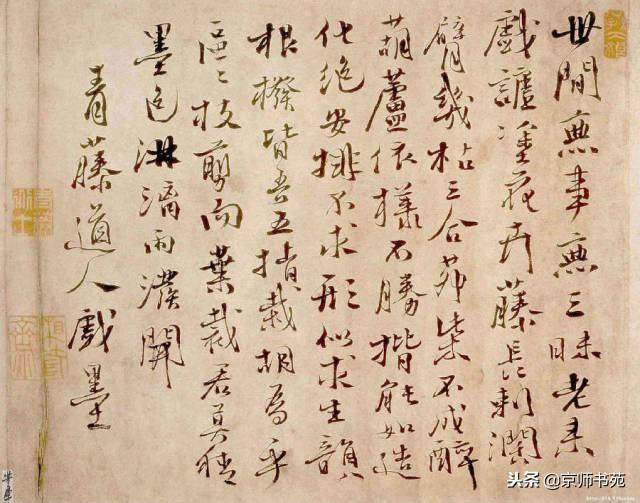 世間無事無三昧老来
戲謔塗花卉藤長刺濶
臂幾枯三合茅柴不成醉
葫蘆依樣不勝揩能如造
化絕安排不求形似求生韻
根撥皆吾五指栽胡為乎
區〻枝剪而葉裁君莫猜
墨色淋漓雨潑開
青藤道人戲墨
头条 @京师书苑